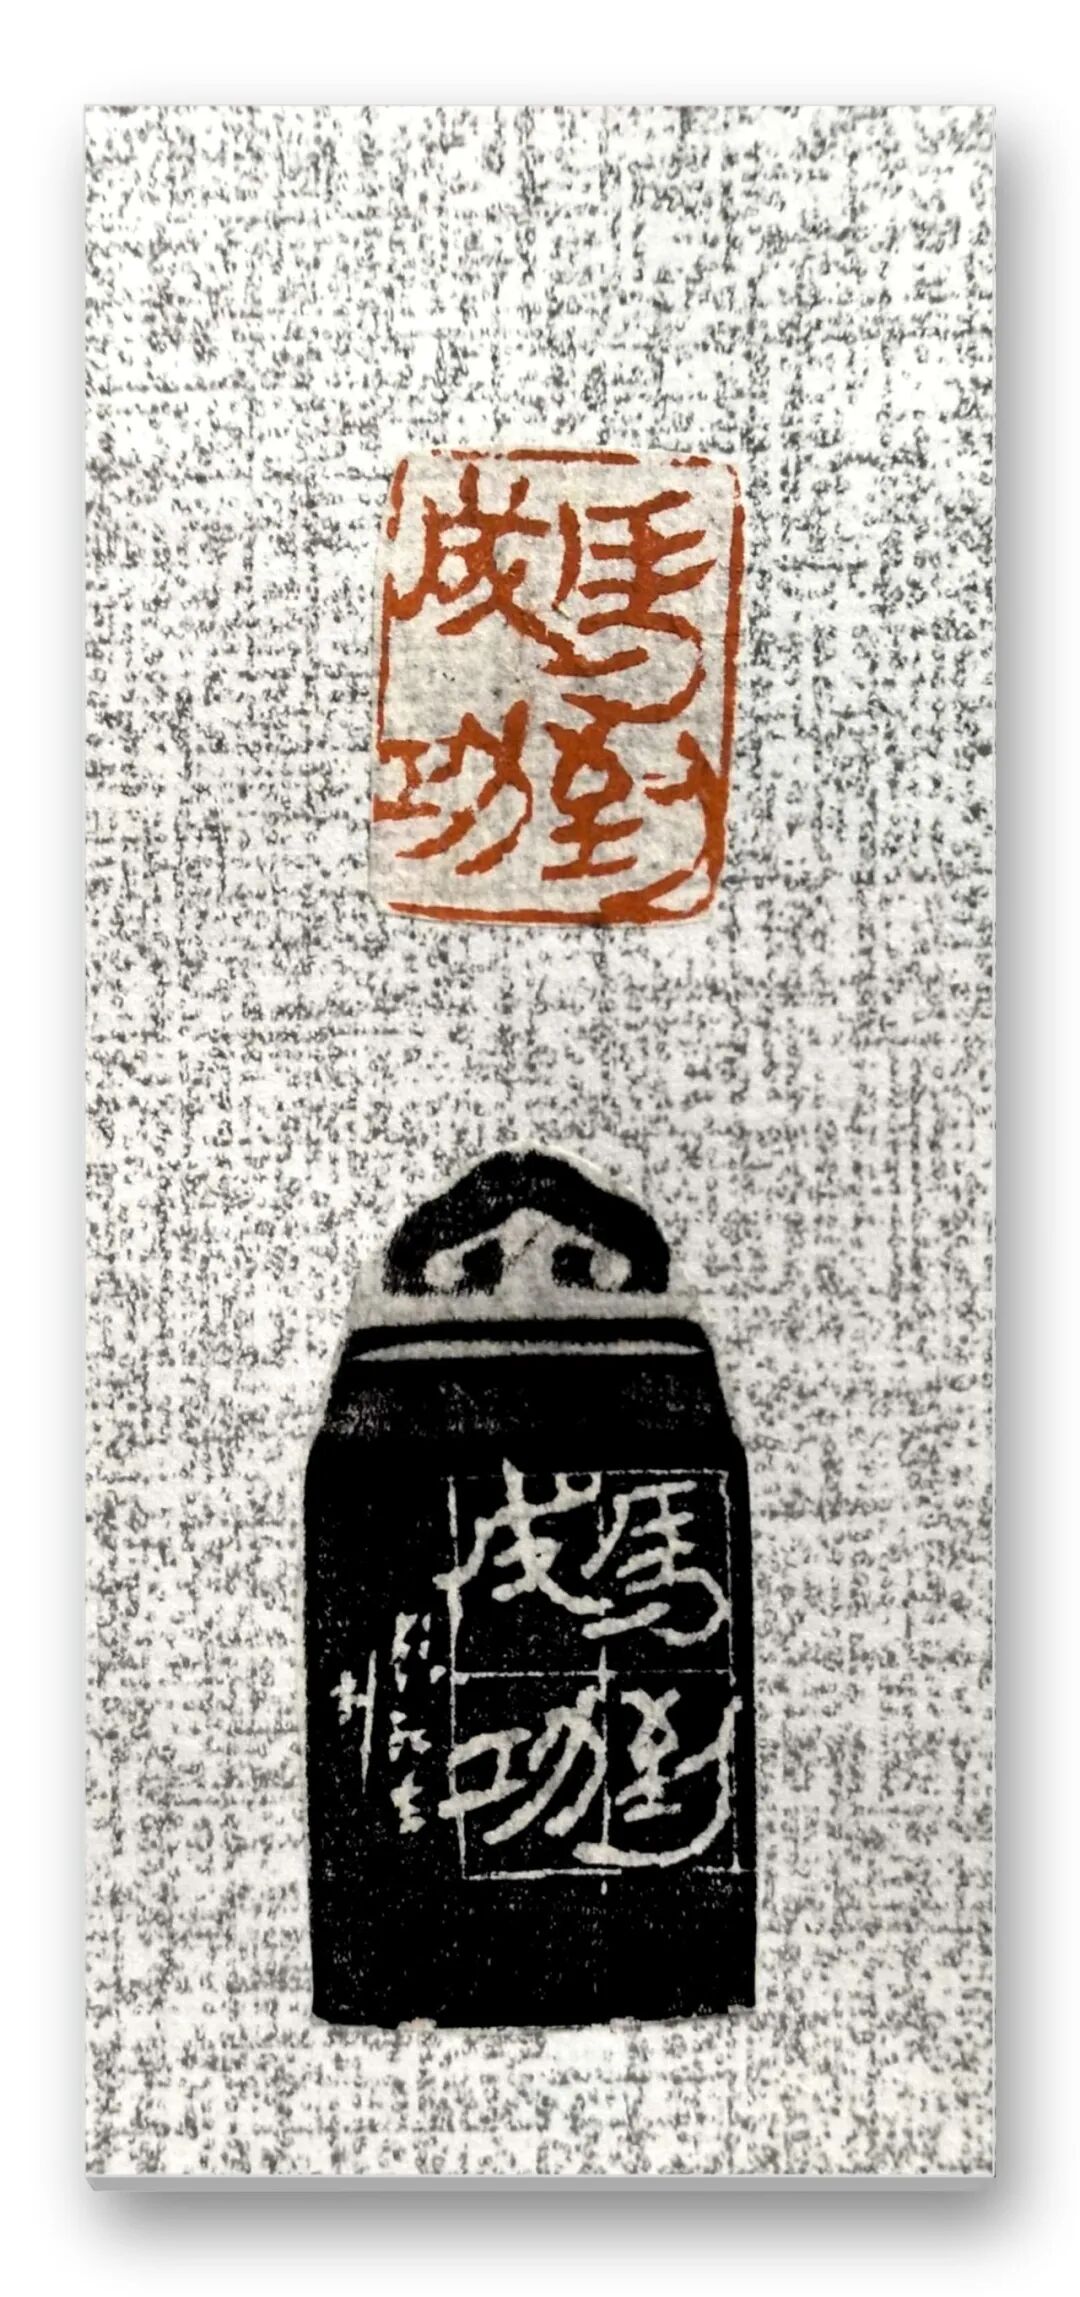 馬到
成功
馬到
成功